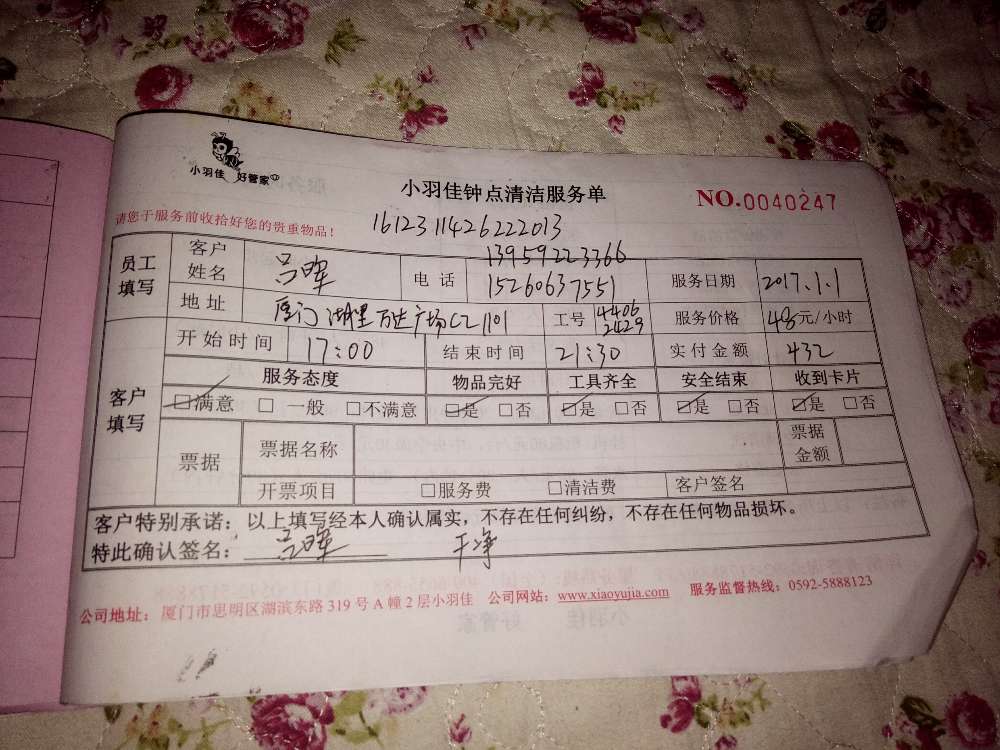 小羽佳 好管家
小羽佳钟点清洁服务单
NO.0040247
请您于服务前收拾好您的贵重物品！
1612311426222013
员工填写 客户姓名 吕晖 电话 13959223366 15260637551 服务日期 2017.1.1
地址 厦门湖里万达广场C2 1101 工号 4406 2429 服务价格 48元/小时
客户填写 开始时间 17:00 结束时间 21:30 实付金额 432
服务态度 物品完好 工具齐全 安全结束 收到卡片
☑满意 □一般 □不满意 ☑是 □否 ☑是 □否 ☑是 □否 ☑是 □否
票据 票据名称 票据金额
开票项目 □服务费 □清洁费 客户签名
客户特别承诺：以上填写经本人确认属实，不存在任何纠纷，不存在任何物品损坏。
特此确认签名：吕晖 干净
公司地址：厦门市思明区湖滨东路319号A幢2层小羽佳 公司网站：www.xiaoyujia.com 服务监督热线：0592-5888123